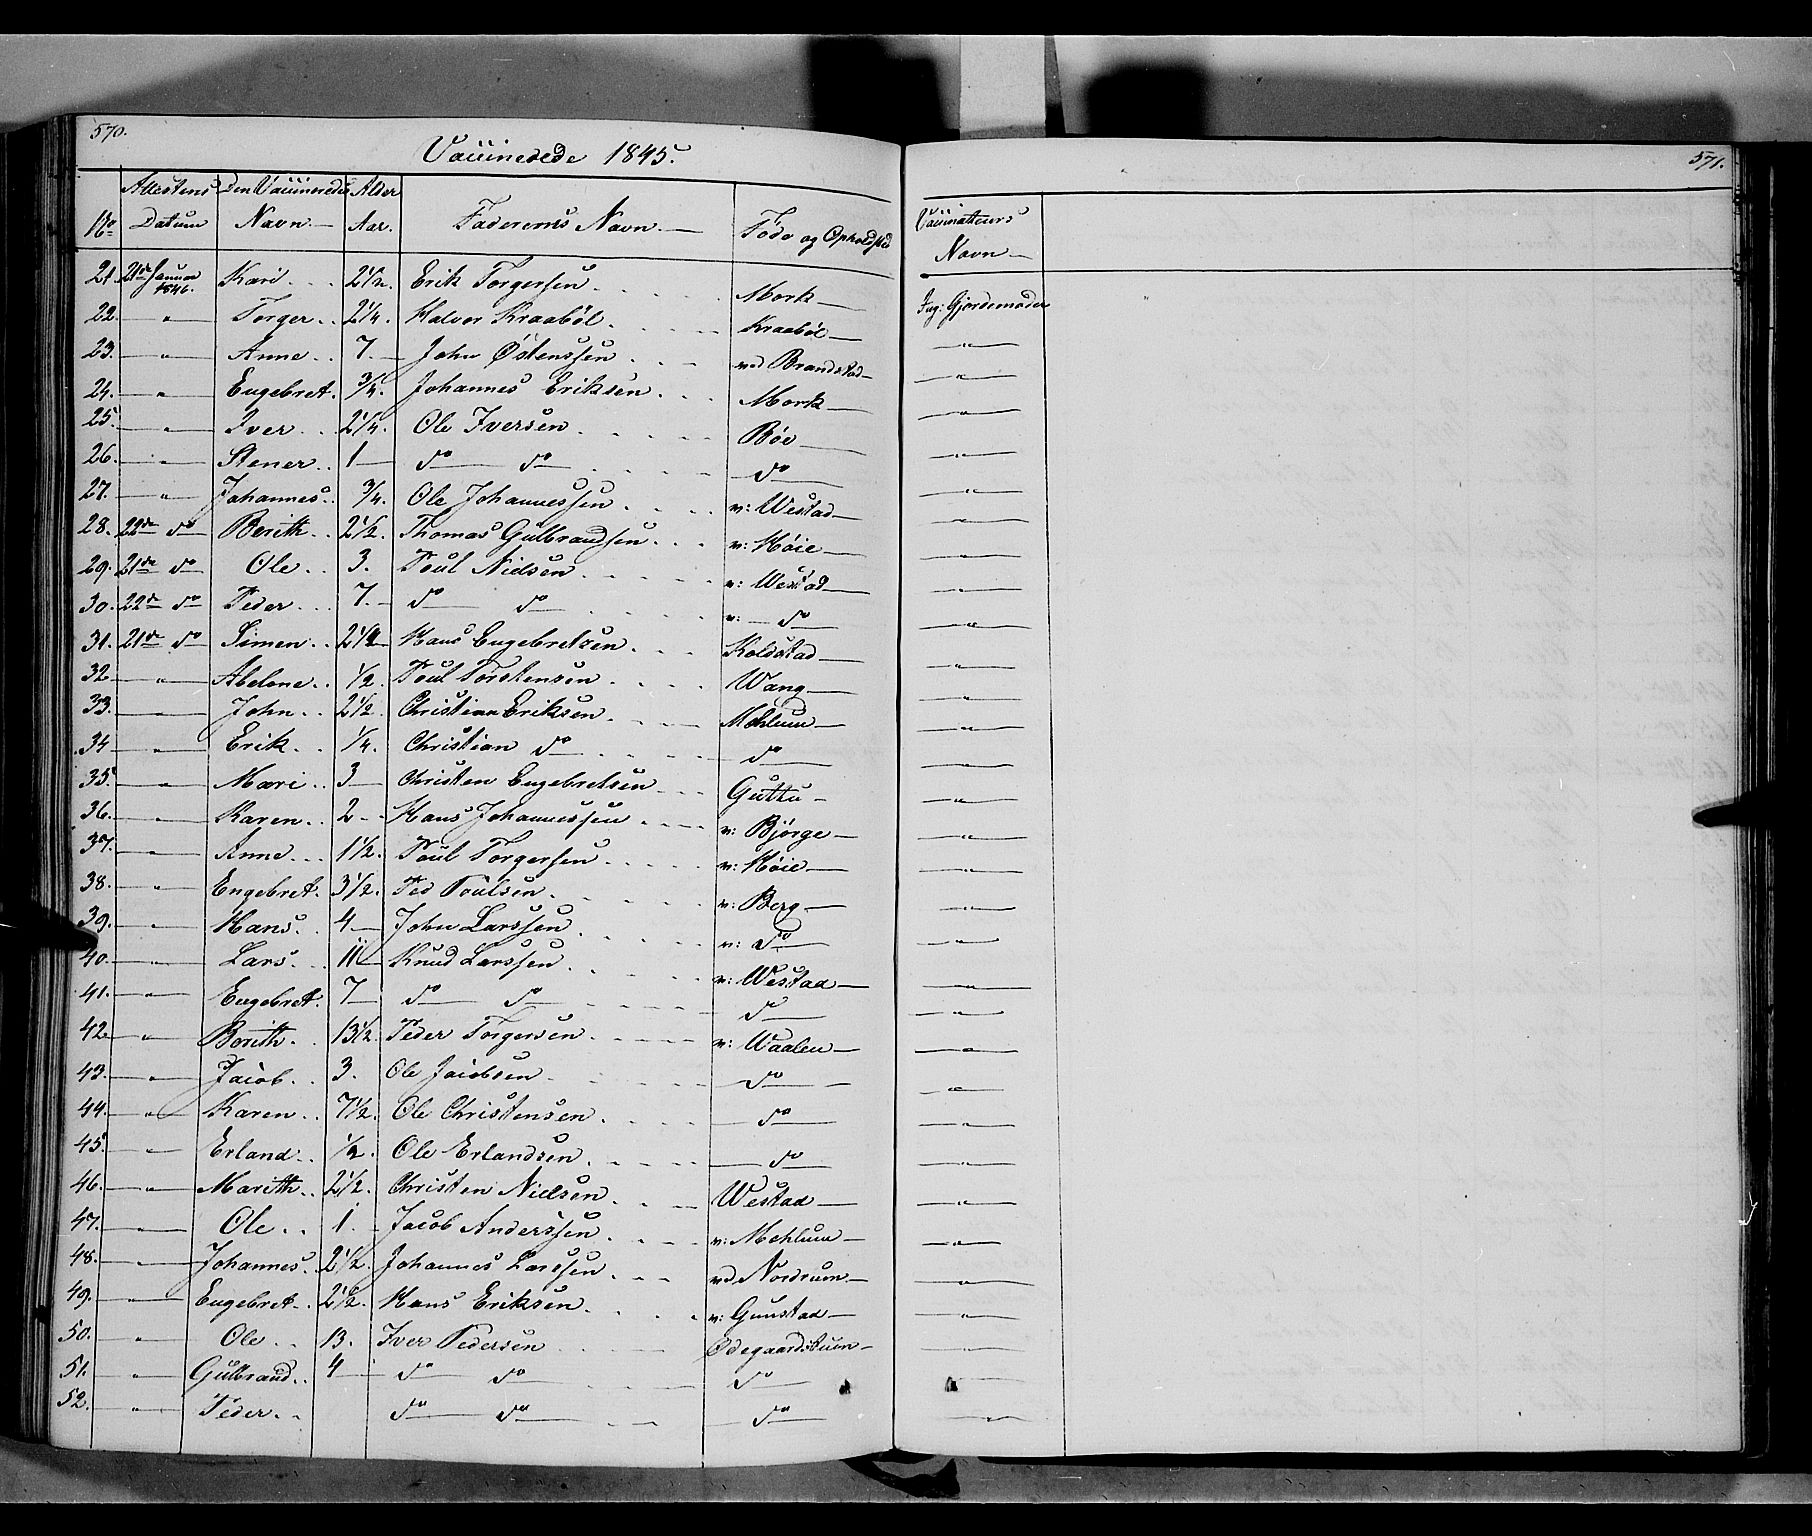 570.
571.
Vaccinerede 1845.
No Attestens Datum Den Vaccineredes Navn Alder Aar. Faderens Navn Føde og Opholdsted Vaccinateurs Navn
21. 21de Januar 1846. Kari 2 1/2 Erik Torgersen Mork Jng: Gjordemoder
22. " Torger 2 1/4. Halvor Kraabøl Kraabøl "
23. " Anne 7. John Østenssen ved Brandstad "
24. " Engebret. 3/4. Johannes Eriksen Mork "
25. " Iver 2 1/4. Ole Iversen Bøe "
26. " Stener 1 do do do "
27. " Johannes 3/4. Ole Johannessen v: Westad "
28. 22de do Berith 2 1/2. Thomas Gulbrandsen v: Høie "
29. 21de do Ole 3. Poul Nielsen v: Westad "
30. 22de do Peder 7. do do v: do "
31. 21de do Simen 2 1/2 Hans Engebretsen Koldstad "
32 " Abelone 1/2. Poul Torstensen Wang "
33. " John 2 1/2. Christian Eriksen Mehlum "
34 " Erik 1/4. Christian do do "
35. " Mari 3 Christen Engebretsen Guttu "
36. " Karen 2 Hans Johannessen v: Bjørge "
37. " Anne 1 1/2. Poul Torgersen v: Høie "
38. " Engebret. 3 1/2. Ped Poulsen v: Berg "
39. " Hans 4 John Larssen v: do "
40. " Lars 11 Knud Larssen v: Westad "
41. " Engebret. 7 do do do "
42. " Berith 13 1/2. Peder Torgersen v: Waalen "
43. " Jacob 3. Ole Jacobsen do "
44. " Karen 7 1/2. Ole Christensen do "
45. " Erland 1/2. Ole Erlandsen do "
46. " Marith 2 1/2. Christen Nielsen Westad "
47. " Ole 1. Jacob Anderssen v: Mehlum "
48. " Johannes 2 1/2. Johannes Larssen vd Nordrum "
49. " Engebret 2 1/2. Hans Eriksen v: Gunstad "
50. " Ole 13. Iver Pedersen Ødegaardstuen "
51. " Gulbrand 4 do do do "
52. " Peder do do do "